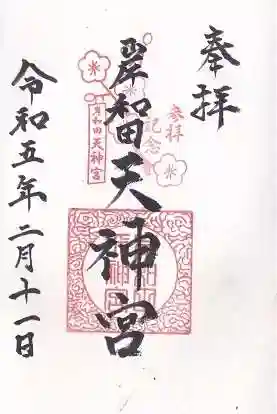 奉拝
岸和田天神宮
参拝
記念
岸和田天神宮
令和五年二月十一日